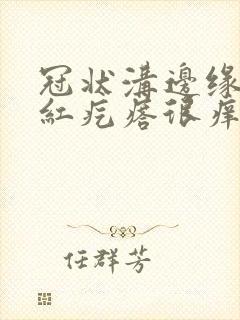 冠状溝邊缘
紅疙瘩很痒
任群芳